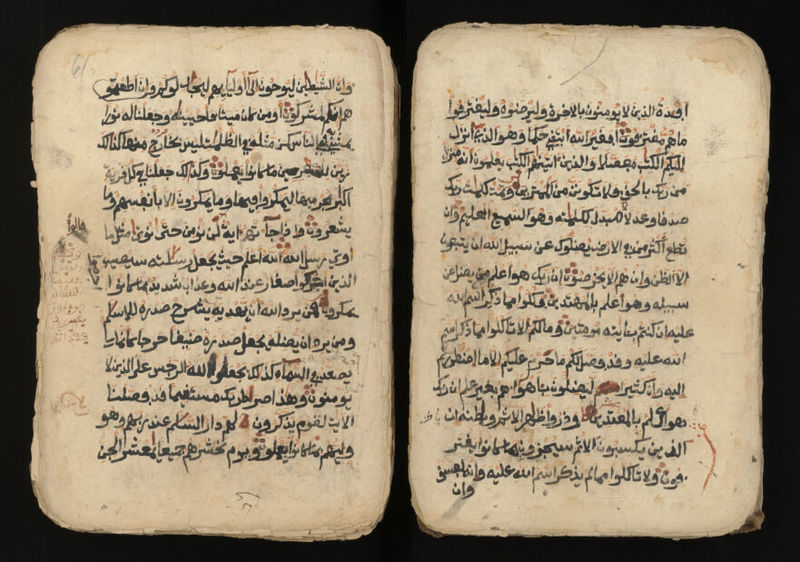 افدة الذين لا يومنون بالاخرة وليرضوه وليقترفوا
ما هم مقترفون افغير الله ابتغي حكما وهو الذي انزل
اليكم الكتب مفصلا والذين اتينهم الكتب يعلمون انه منزل
من ربك بالحق فلا تكونن من الممترين وتمت كلمت ربك
صدقا وعدلا لا مبدل لكلمته وهو السميع العليم وان
تطع اكثر من في الارض يضلوك عن سبيل الله ان يتبعون
الا الظن وان هم الا يخرصون ان ربك هو اعلم من يضل عن
سبيله وهو اعلم بالمهتدين فكلوا مما ذكر اسم الله
عليه ان كنتم بايته مومنين وما لكم الا تاكلوا مما ذكر اسم
الله عليه وقد فصل لكم ما حرم عليكم الا ما اضطررتم
اليه وان كثيرا ليضلون باهوايهم بغير علم ان ربك
هو اعلم بالمعتدين وذروا ظهر الاثم وباطنه ان
الذين يكسبون الاثم سيجزون بما كانوا يقتر
فون ولا تاكلوا مما لم يذكر اسم الله عليه وانه لفسق
وان
61
وان الشيطين ليوحون الى اوليايهم ليجدلوكم وان اطعتمو
هم انكم لمشركون اومن كان ميتا فاحيينه وجعلنا له نورا
يمشي به في الناس كمن مثله في الظلمت ليس بخارج منها كذلك
زين للكفرين ما كانوا يعملون وكذلك جعلنا في كل قرية
اكبر مجرميها ليمكروا فيها وما يمكرون الا بانفسهم وما
يشعرون واذا جاتهم اية لن نومن حتى نوتى مثل ما
اوتي رسل الله الله اعلم حيث يجعل رسلته سيصيب
الذين اجرموا صغار عند الله وعذاب شديد بما كانوا
يمكرون فمن يرد الله ان يهديه يشرح صدره للاسلم
ومن يرد ان يضله يجعل صدره ضيقا حرجا كانما
يصعد في السماء كذلك يجعل الله الرجس على الذين لا
يومنون وهذا صراط ربك مستقيما قد فصلنا
الايت لقوم يذكرون لهم دار السلم عند ربهم وهو
وليهم بما كانوا يعملون ويوم نحشرهم جميعا يمعشر الجن
قالوا